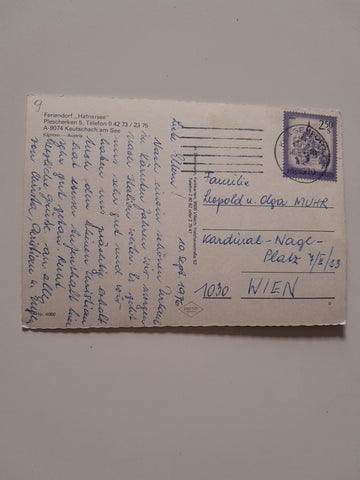 9
Feriendorf „Hafnersee"
Plescherken 5, Telefon 0 42 73 / 23 75
A-9074 Keutschach am See
Kärnten — Austria
10. Sept. 1976
Liebe Eltern!
Nach einem schönen Urlaub
in Kärnten fahren wir morgen
nach Italien weiter. Es geht
uns sehr gut und wir
haben uns prächtig erholt.
Auch dem kleinen Christian
hat unser Aufenthalt hier
sehr gut getan. Recht
herzliche Grüße an alle
von
Christian u.
Nr. 4060
2.50
Familie
Leopold u. Olga MUHR
Kardinal-Nagl-
Platz 7/II/23
1030 WIEN